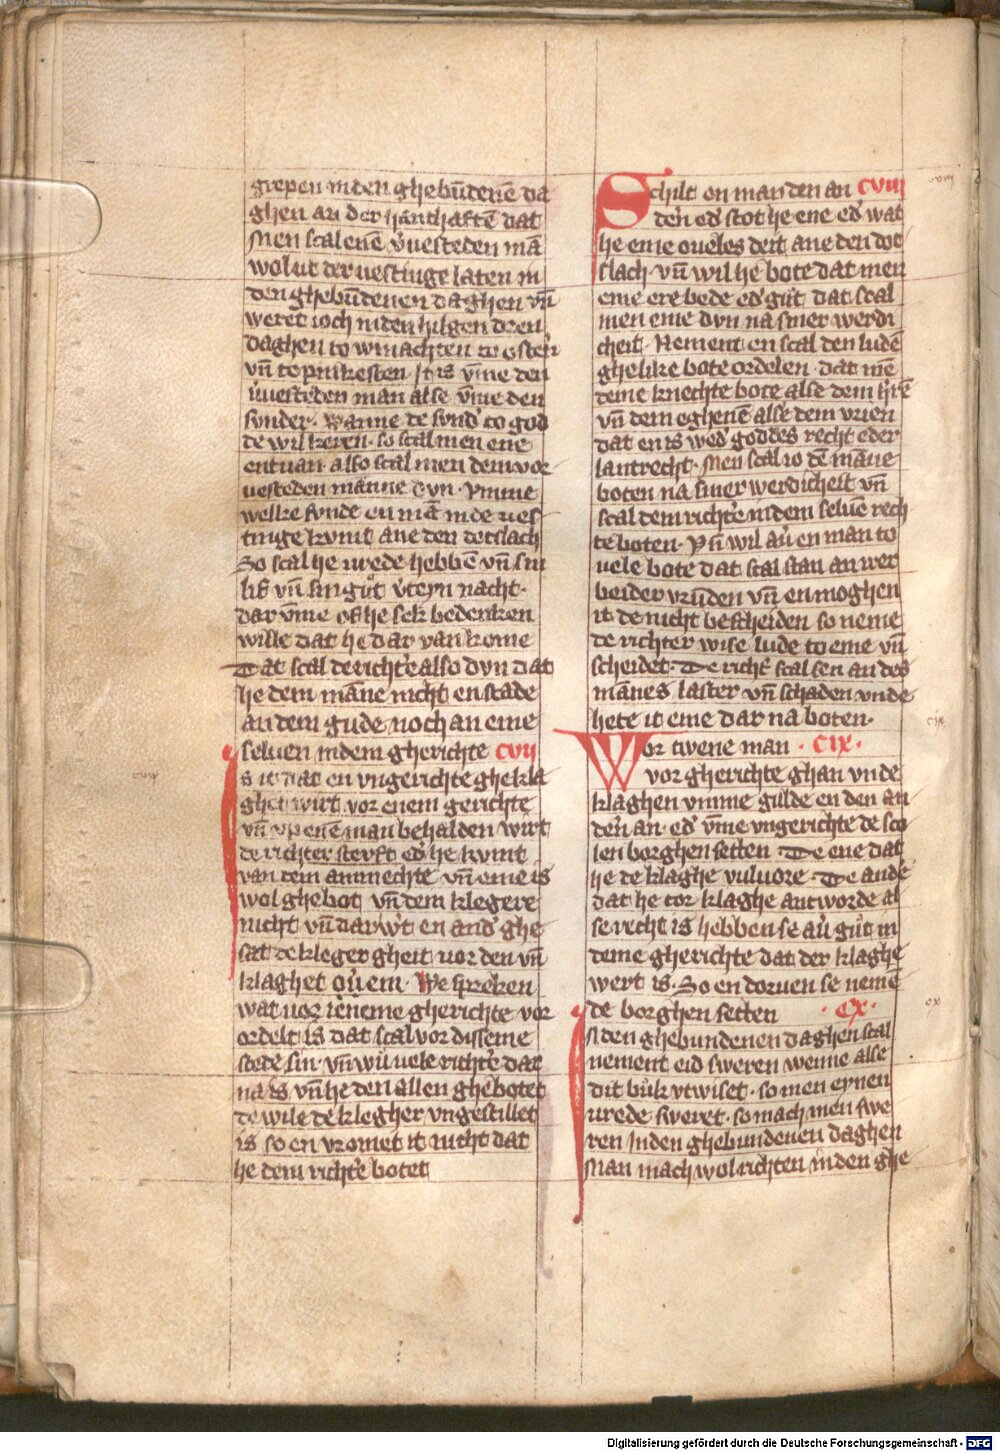 grepen in den ghebūdenē da
ghen an der hanthaftē dat
Men scal enē v̄uesteden mā
wol ut der uestinge laten in
den ghebūdenen daghen vn̄
weret ioch in den hilgen dren
daghen to winachten to osterē
vn̄ to pinkesten. It is v̄me den
v̄uesteden man alse v̄me den
sunder. Wanne de sund' to god
de wil keren. so scal men ene
entuan. also scal men dem vor
uesteden manne dun. Vmme
welke sunde en mā in de ues
tinge kumt ane den dotslach
So scal he urede hebbē vn̄ sin
lif vn̄ sin gůt v̄teyn nacht.
dar v̄me oft he sek bedenken
wille dat he dar van kome
Dat scal de richt'e also dun dat
he dem māne nicht en stade
an dem gude noch an eme
seluen in dem gherichte CVII
Is it dat en vngerichte ghekla
ghet wirt vor enem gerichte
vn̄ vp enē man behalden wirt
de richter sterft ed' he kumt
van dem ammechte vn̄ eme is
wol ghebot vn̄ dem klegere
nicht vn̄ dar w't en and' ghe
sat de kleger gheit uor den vn̄
klaghet ou'em. We spreken
wat uor ieneme gherichte vor
ordelt is dat scal vor disseme
stede sin. vn̄ wil uele richt'e dar
na is vn̄ he den allen ghebotet
de wile de klegher vngestillet
is so en vromet it nicht dat
he dem richt'e botet
Schilt en man den an CVIII
d'en ed' stot he ene ed' wat
he eme oueles deit ane den dot
slach. vn̄ wil he bote dat men
eme ere bede ed' gůt dat scal
men eme dun na siner werdi
cheit. Nement en scal den ludē
ghelike bote ordelen. dat mē
deme knechte bote alse dem h'rē
vn̄ dem eghenē alse dem vrien
dat en is wed' goddes recht eder
lantrecht. Men scal io dē māne
boten na siner werdicheit vn̄
scal dem richt'e in dem seluē rech
te boten. Vn̄ wil au' en man to
uele bote dat scal stan an wer
beider vrūden vn̄ en moghen
it de nicht bescheiden so neme
de richter wise lude to eme vn̄
scheidet. De richt'e scal sen an des
mānes laster vn̄ schaden vnde
hete it eme dar na boten.
Wor twene man. CIX.
vor gherichte ghan vnde
klaghen vmme gulde en den an
d'en an. ed' v̄me vngerichte de sco
len borghen setten De ene dat
he de klaghe vulvore. De and'e
dat he tor klaghe antworde al
se recht is hebben se au' gůt in
deme gherichte dat der klaghe
wert is. So en doruen se nemē
de borghen setten CX.
In den ghebundenen daghen scal
nement eid sweren wenne alse
dit bůk vtwiset. so men eynen
urede sweret. so mach men swe
ren in den ghebundenen daghen
Man mach wol richten in den ghe
cviii
cvii
cix
cx
Digitalisierung gefördert durch die Deutsche Forschungsgemeinschaft - DFG